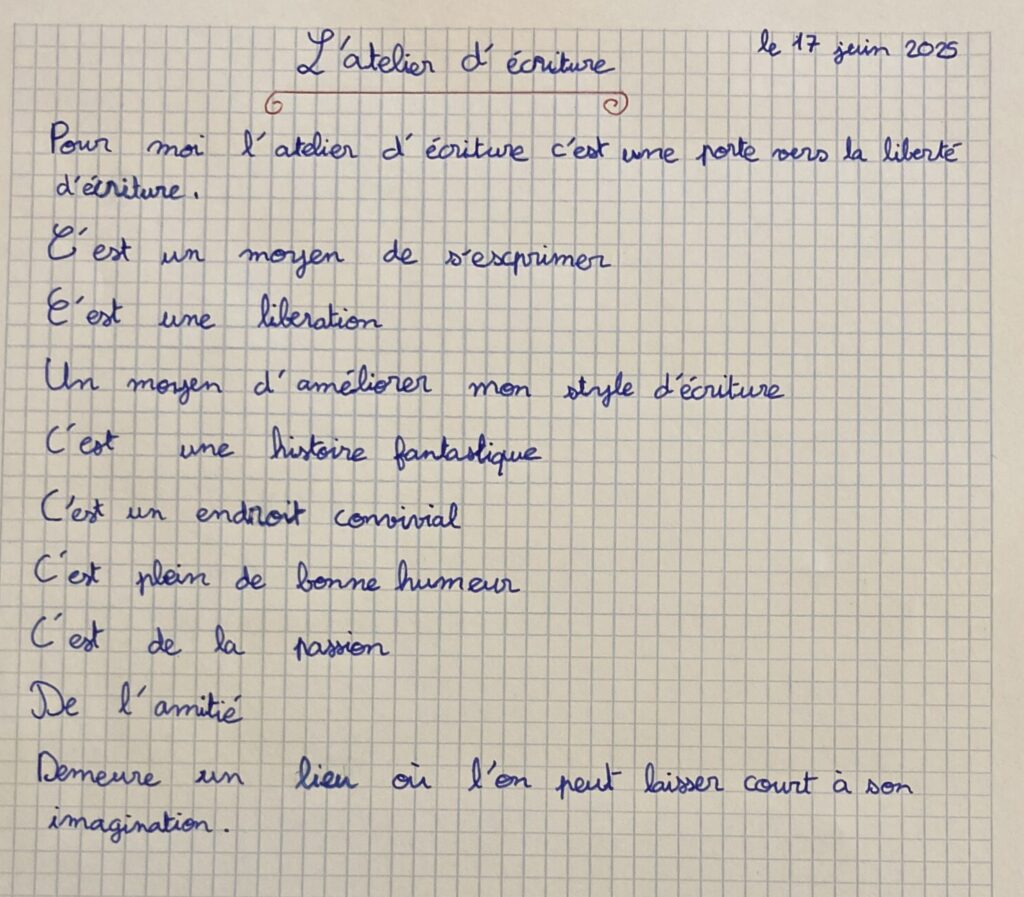 L'atelier d'écriture
le 17 juin 2025
Pour moi l'atelier d'écriture c'est une porte vers la liberté
d'écriture.
C'est un moyen de s'exprimer
C'est une liberation
Un moyen d'améliorer mon style d'écriture
C'est une histoire fantastique
C'est un endroit convivial
C'est plein de bonne humeur
C'est de la passion
De l'amitié
Demeure un lieu où l'on peut laisser court à son
imagination.